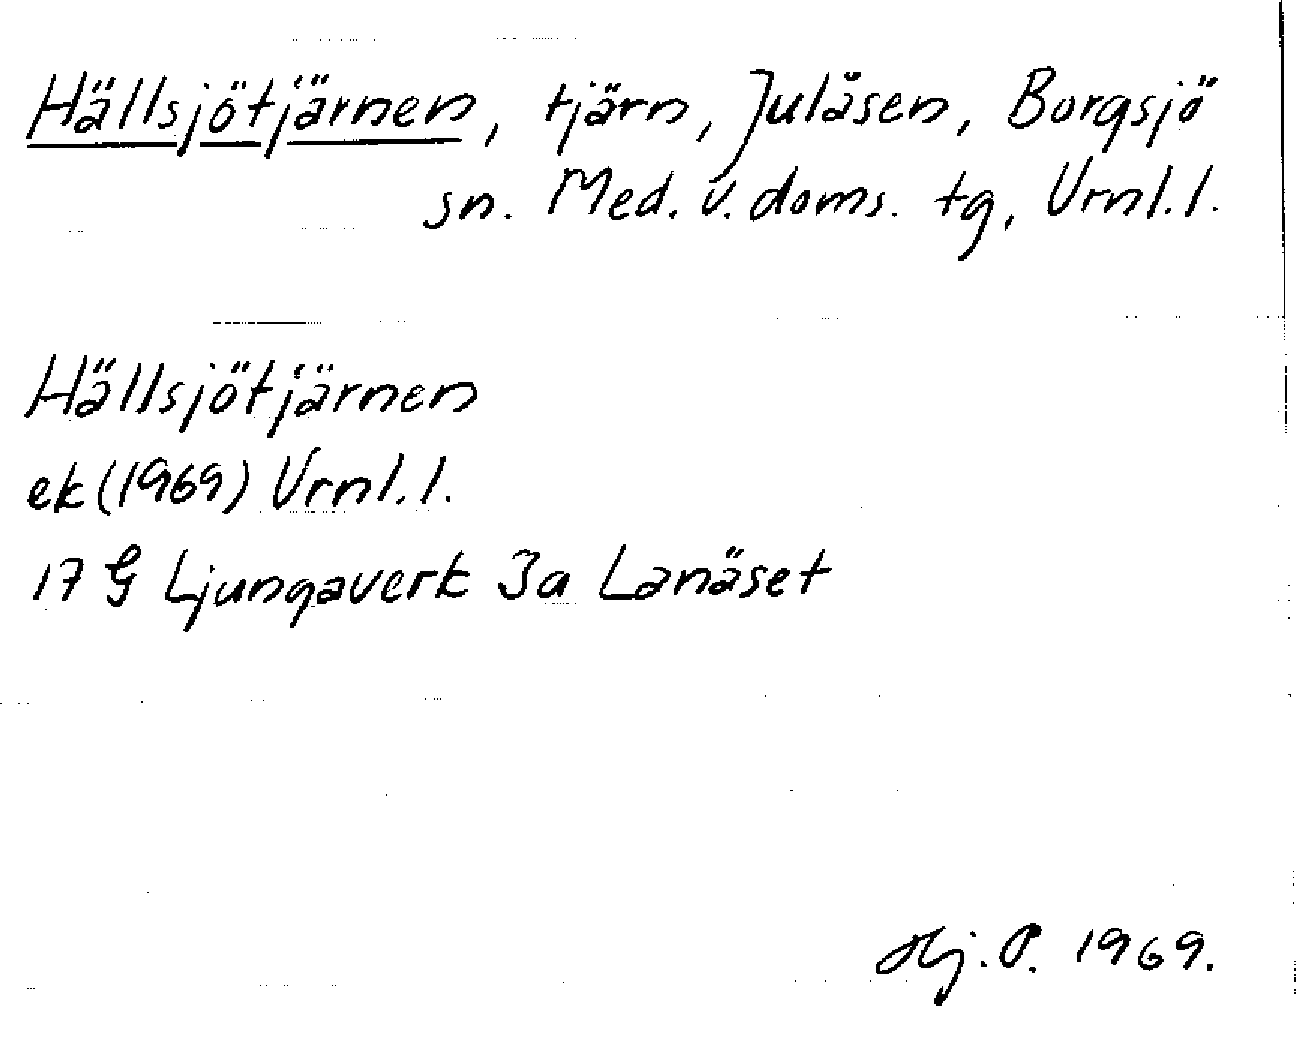 Hällsjötjärnen, tjärn, Julåsen, Borgsjö
sn. Med. v. doms. tg, Vrnl.l.
Hällsjötjärnen
ek (1969) Vrnl.l.
17 G Ljungaverk 3a Lanäset
Hj. P. 1969.